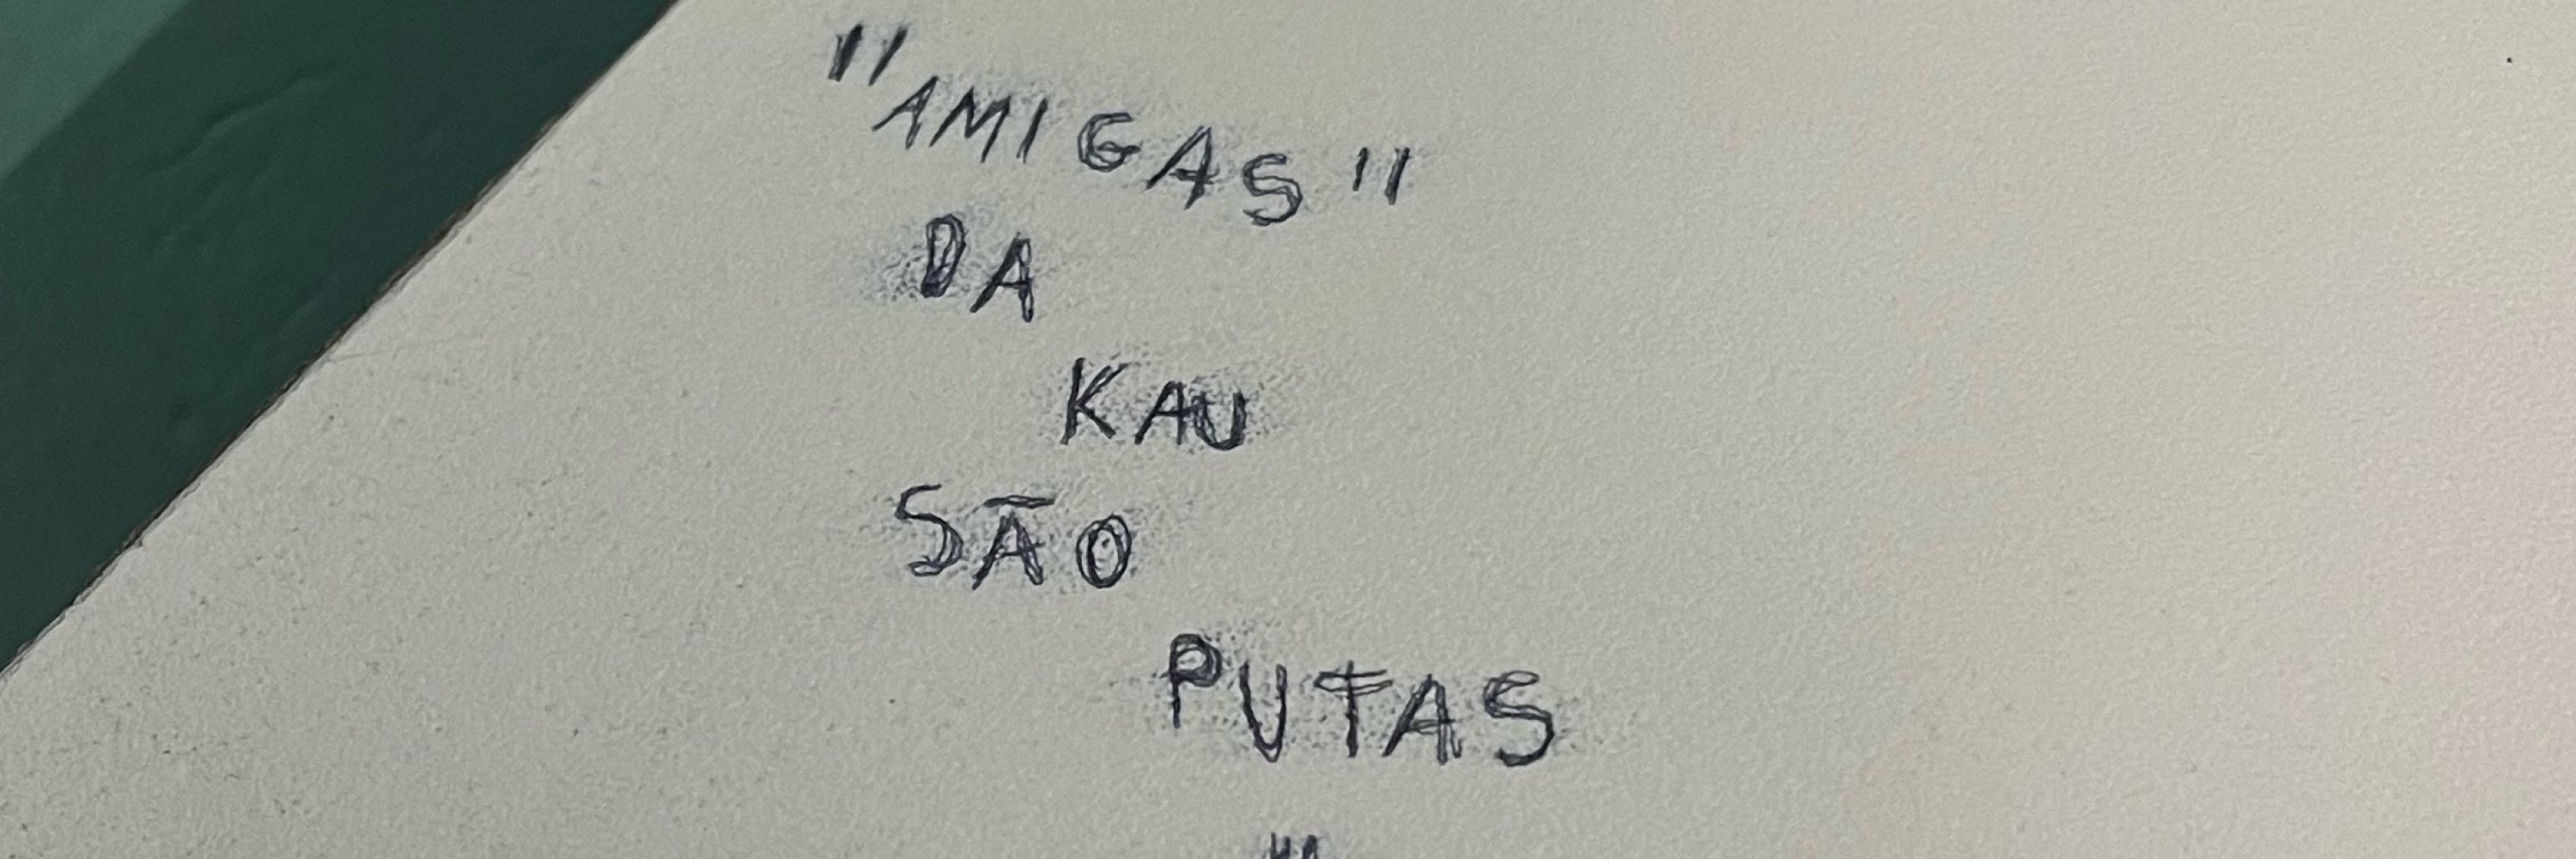 "AMIGAS"
DA
KAU
SÃO
PUTAS